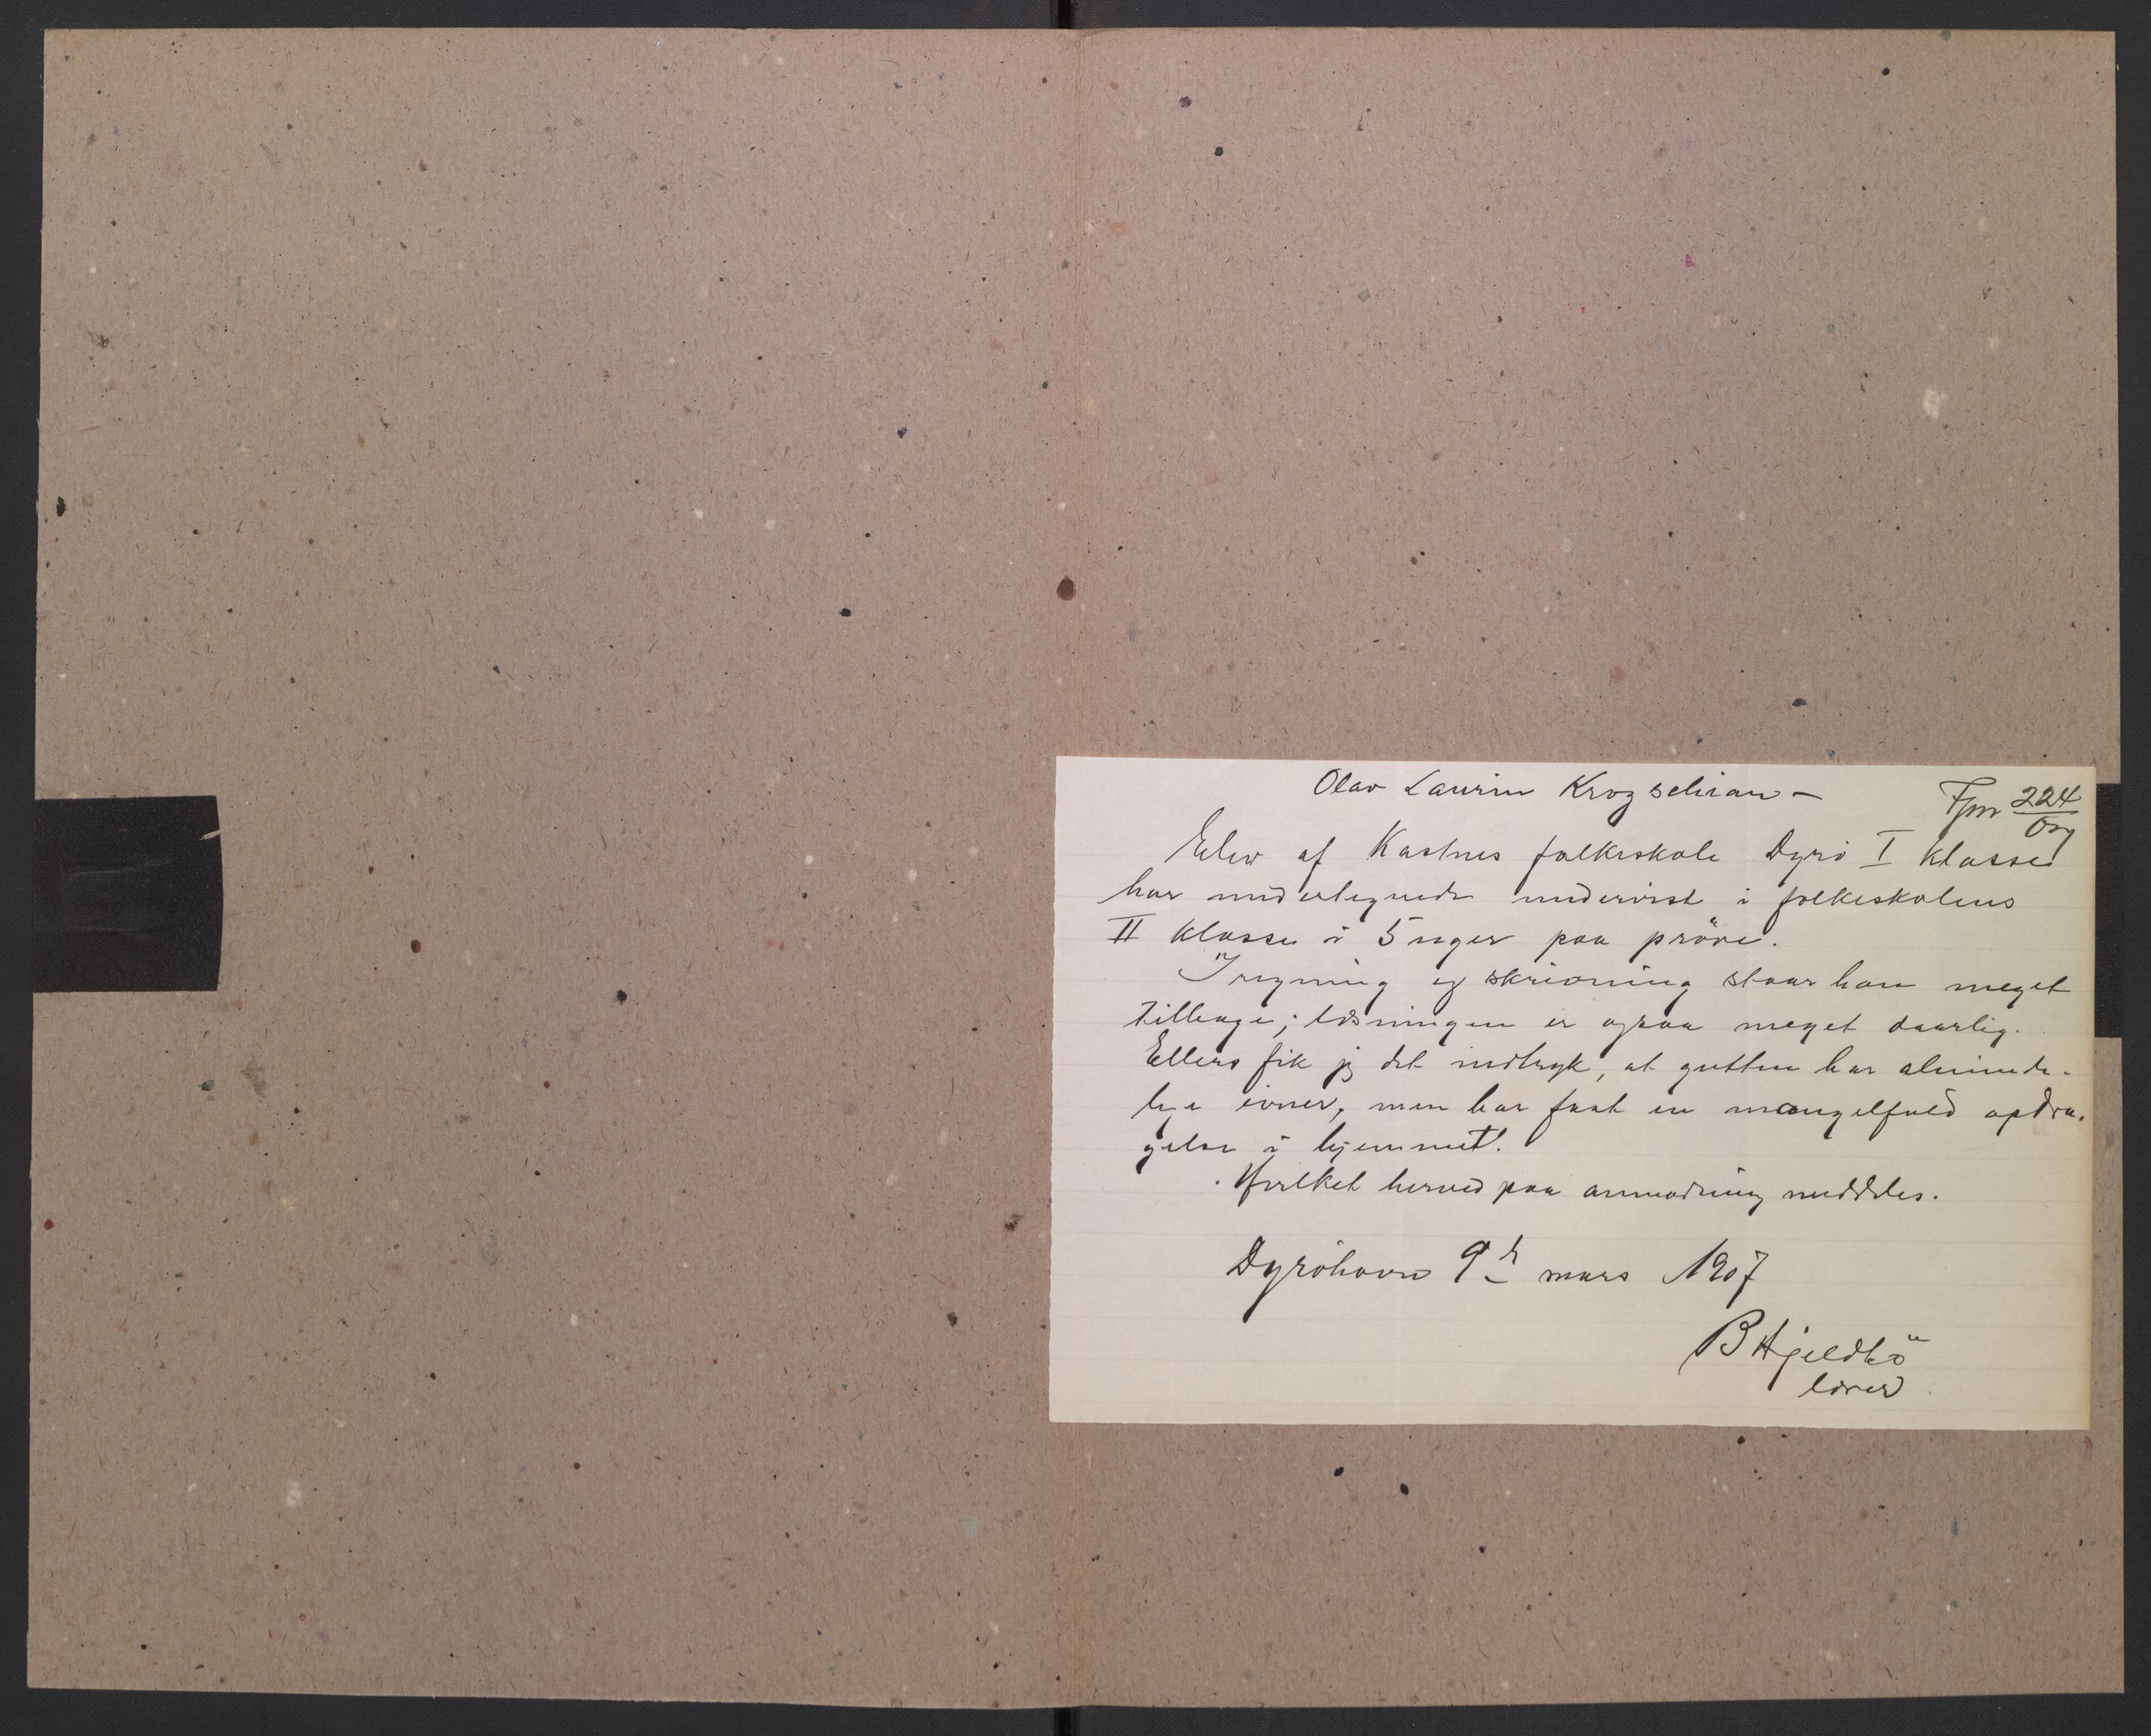 Olav Laurin Krogseliran –
Fjm 224/07
Elev af Kastnes folkeskole Dyrö I klasse
har undertegnede undervist i folkeskolens
II klasse i 5 uger paa pröve.
I regning og skrivning staar han meget
tilbage; læsningen er ogsaa meget daarlig.
Ellers fik jg det indtryk, at gutten har alminde-
lige evner, men har faat en mangelfuld opdra-
gelse i hjemmet.
Hvilket herved paa anmodning meddeles.
Dyröhavn 9de mars 1907
B Hjeldbö
lærer